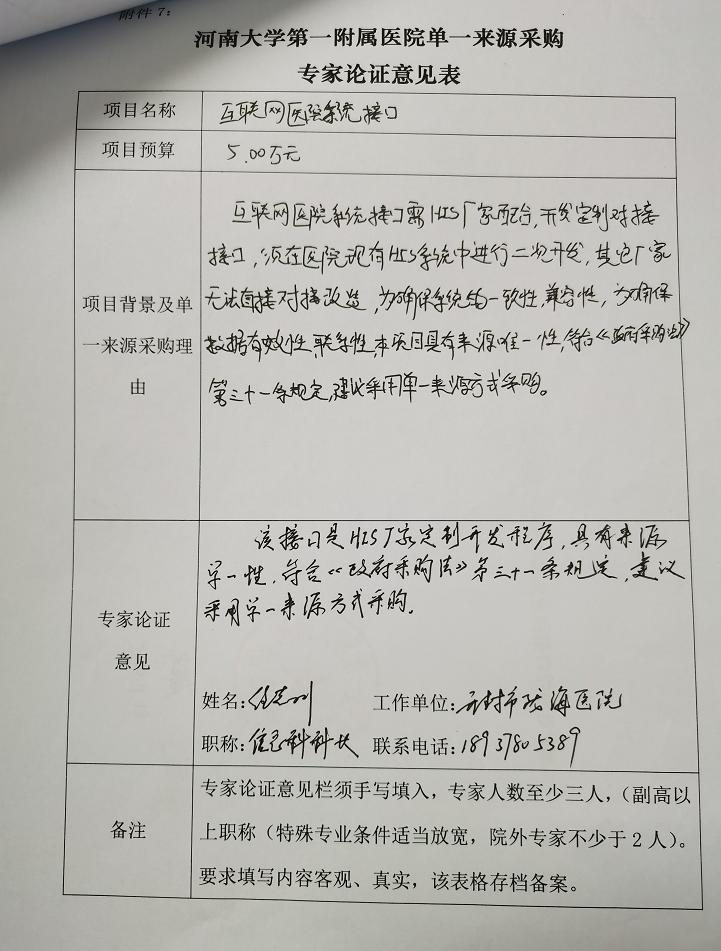 附件7:
河南大学第一附属医院单一来源采购
专家论证意见表
项目名称
互联网医院系统接口
项目预算
5.00万元
项目背景及单
一来源采购理
由
互联网医院系统接口需HIS厂家配合,开发定制对接
接口,须在医院现有HIS系统中进行二次开发,其它厂家
无法直接对接改造,为确保系统的一致性,兼容性,为确保
数据有效性,联系性,本项目具有来源唯一性,符合《政府采购法》
第三十一条规定,建议采用单一来源方式采购。
专家论证
意见
该接口是HIS厂家定制开发程序,具有来源
单一性,符合《政府采购法》第三十一条规定,建议
采用单一来源方式采购。
姓名:任 川
工作单位:开封市陇海医院
职称:信息科科长
联系电话:18937805389
备注
专家论证意见栏须手写填入,专家人数至少三人,(副高以
上职称(特殊专业条件适当放宽,院外专家不少于2人)。
要求填写内容客观、真实,该表格存档备案。